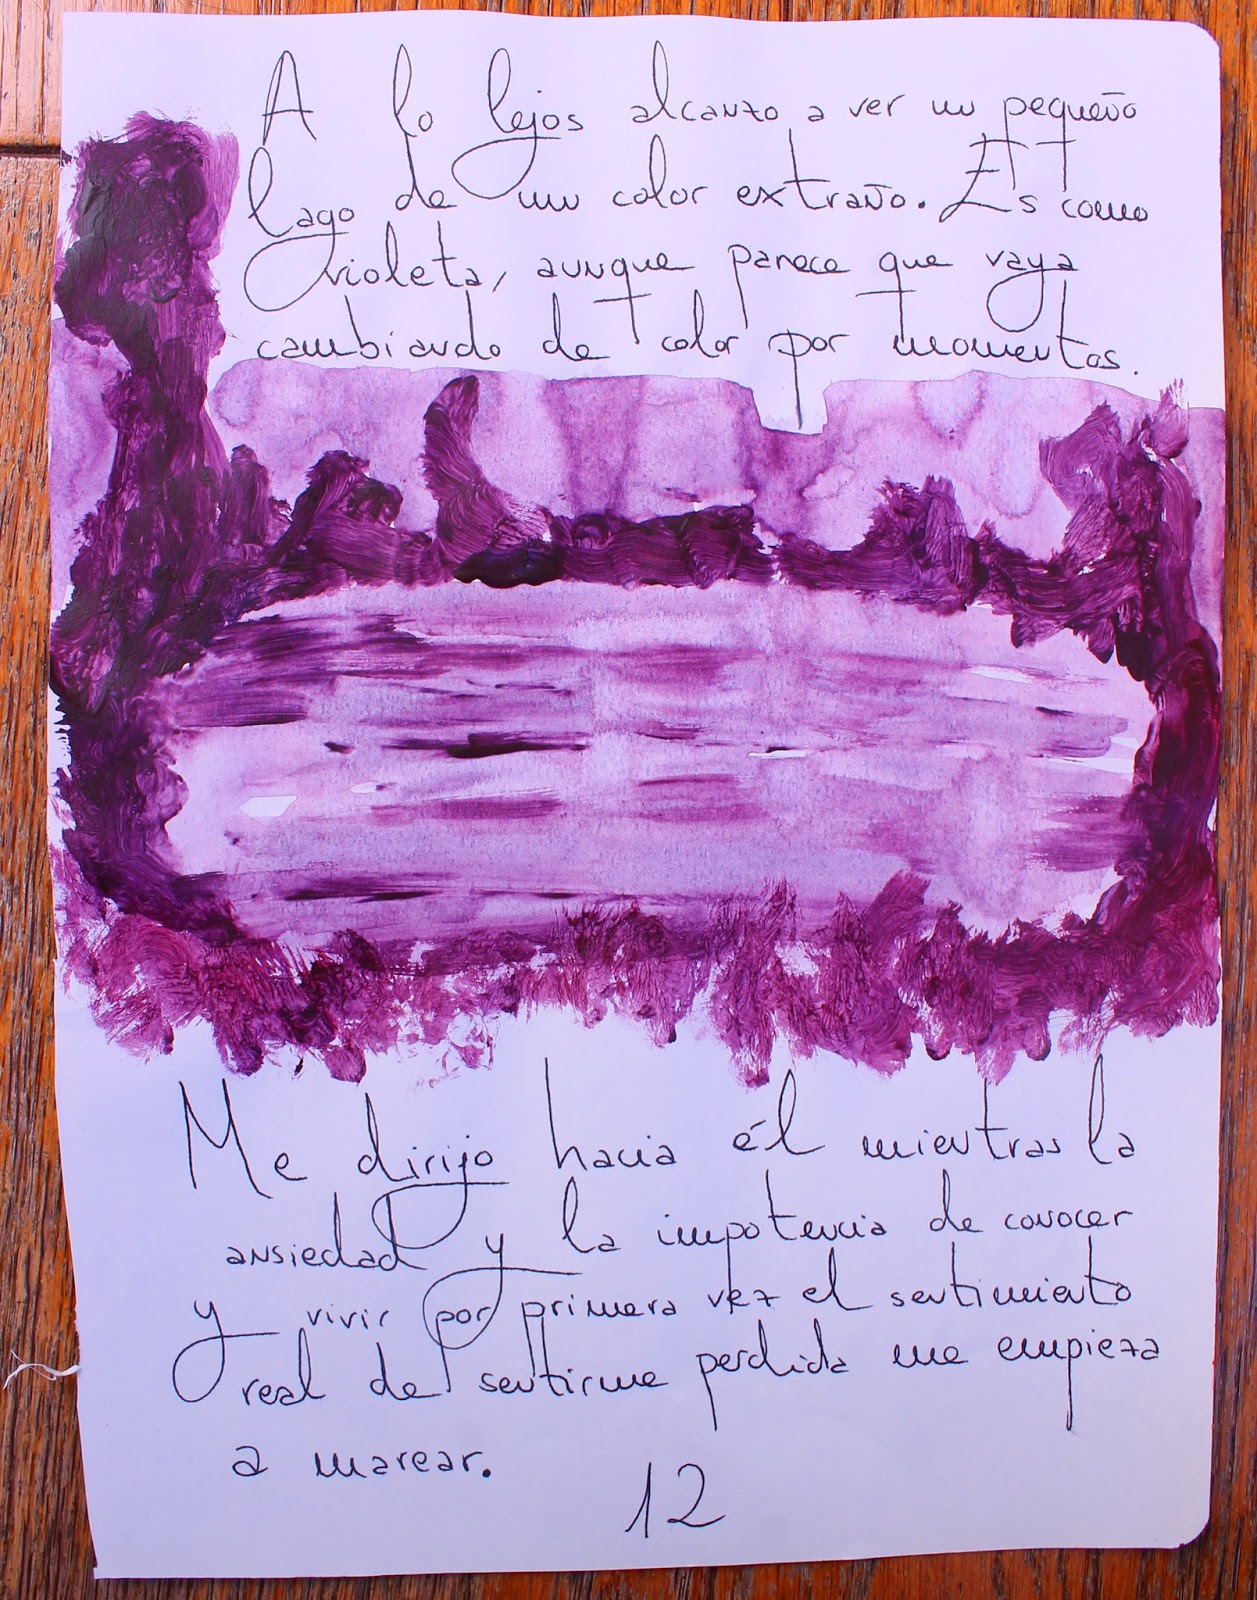 A lo lejos alcanzo a ver un pequeño
lago de un color extraño. Es como
violeta, aunque parece que vaya
cambiando de color por momentos.
Me dirijo hacia él mientras la
ansiedad y la impotencia de conocer
y vivir por primera vez el sentimiento
real de sentirme perdida me empieza
a marear.
12